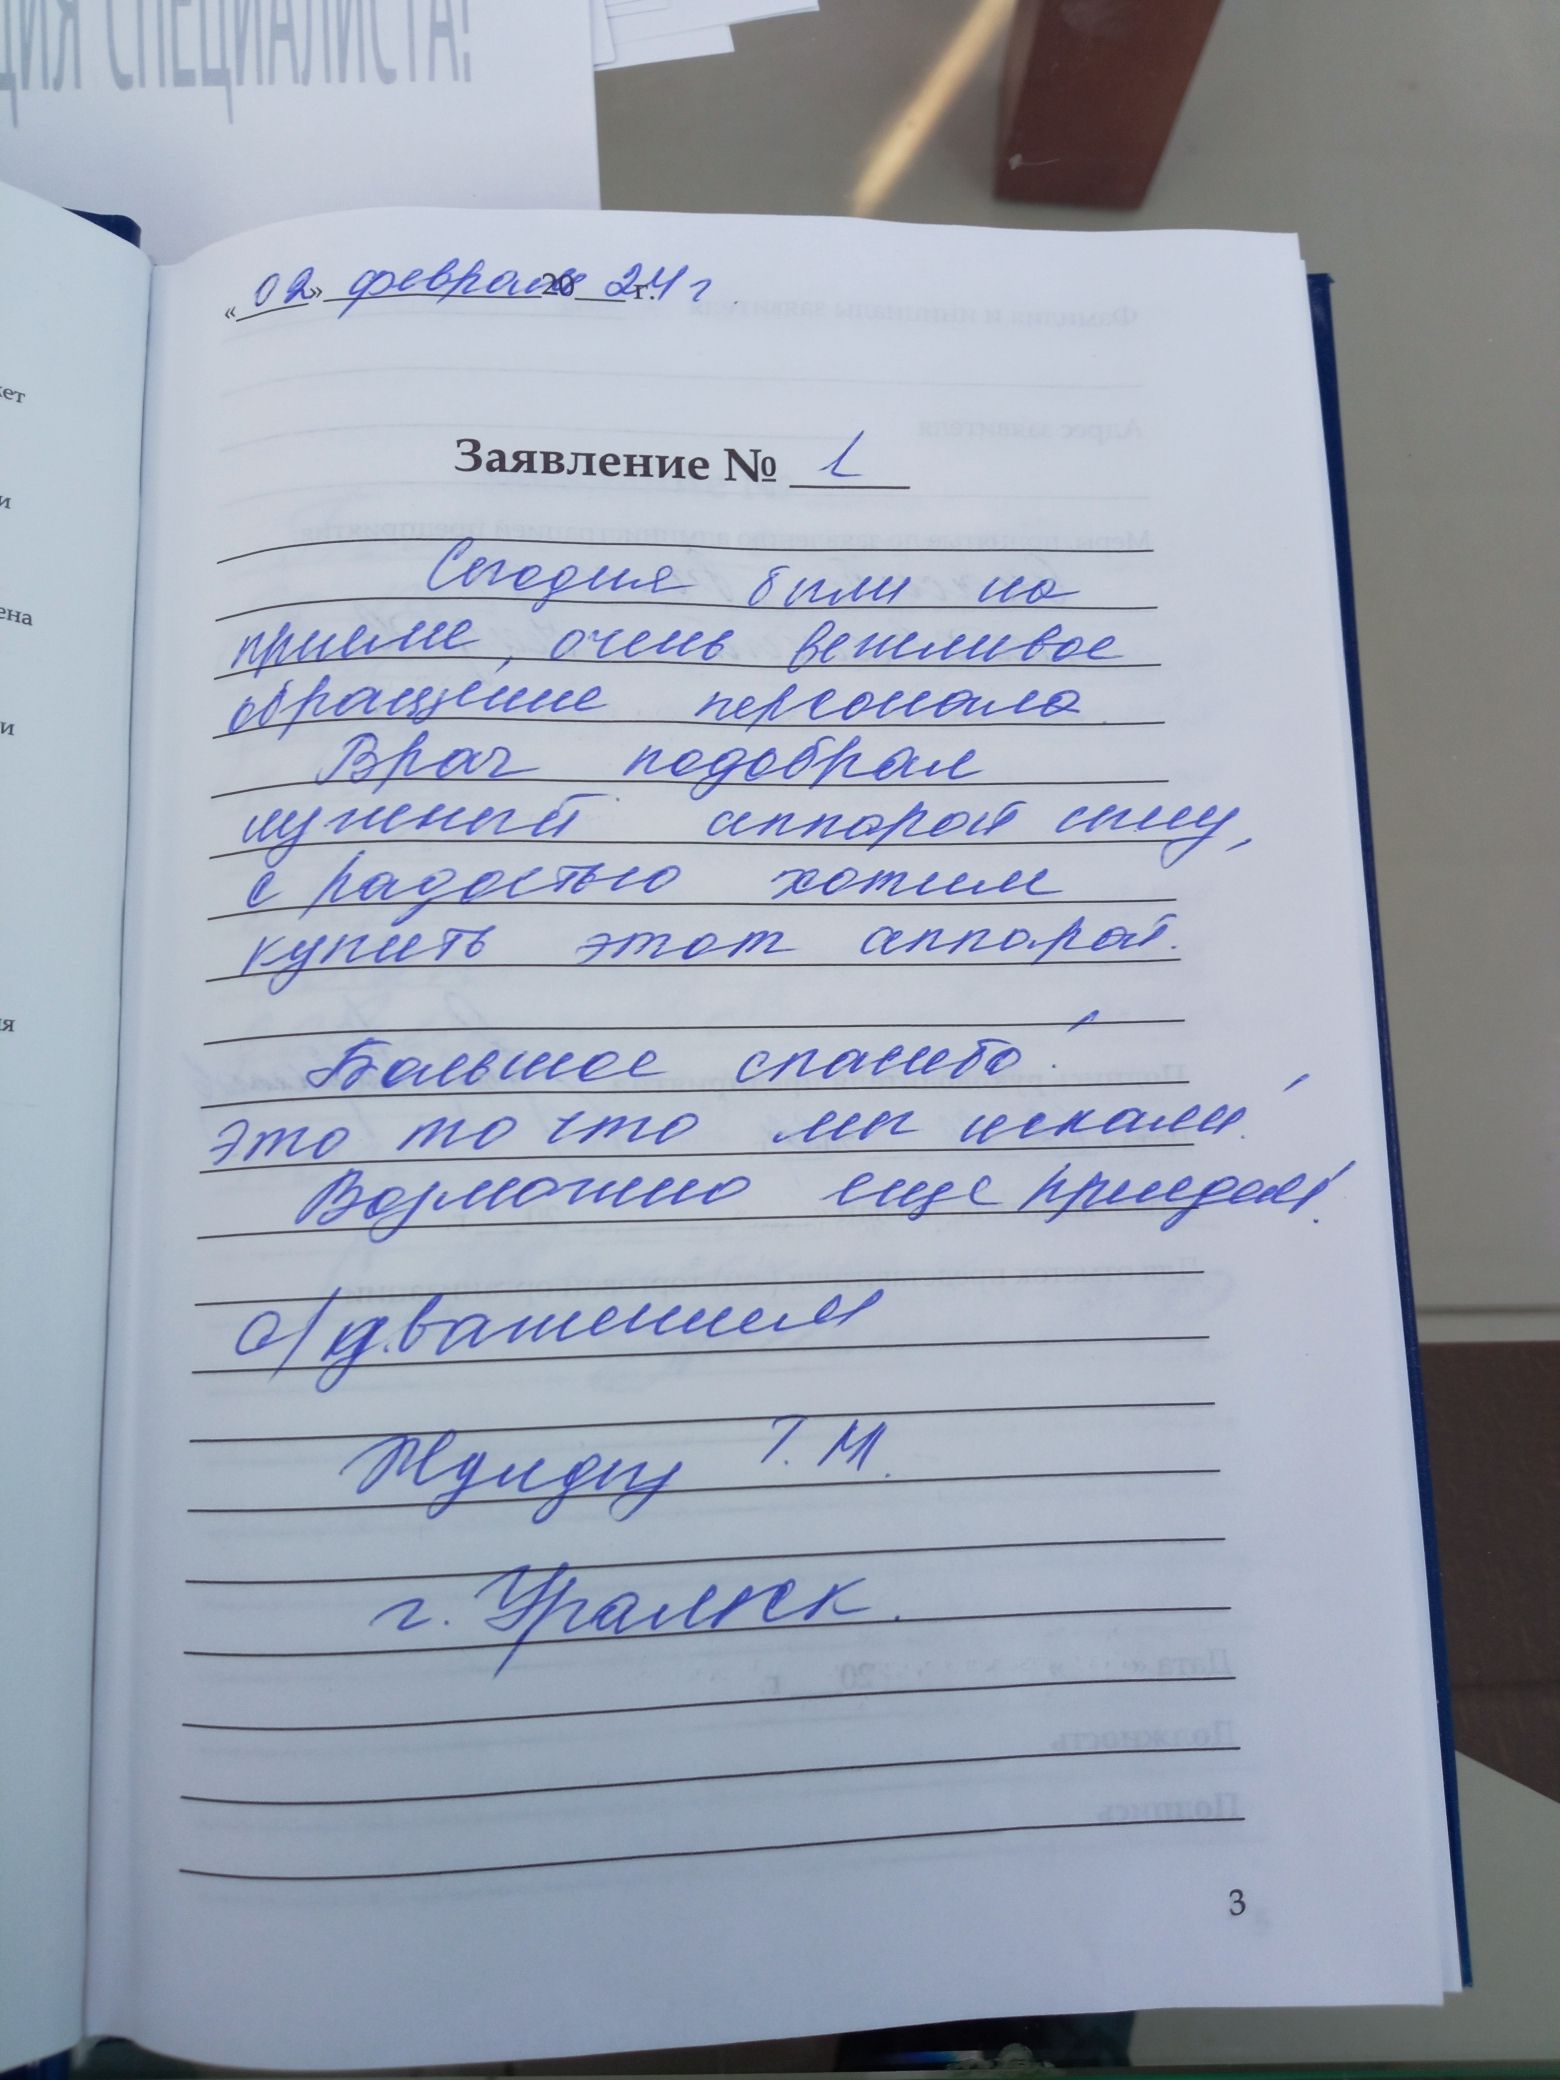 ЦИЯ СПЕЦИАЛИСТА!
«02» февраля 20 24 г. г
Заявление № 1
Сегодня были на
приеме, очень вежливое
обращение персонала.
Врач подобрал
нужный аппарат сыну,
с радостью хотим
купить этот аппарат.
Большое спасибо!
Это то что мы искали!
Возможно еще приедем!
С/ уважением
Жулдыз Т. М.
г. Уральск.
3